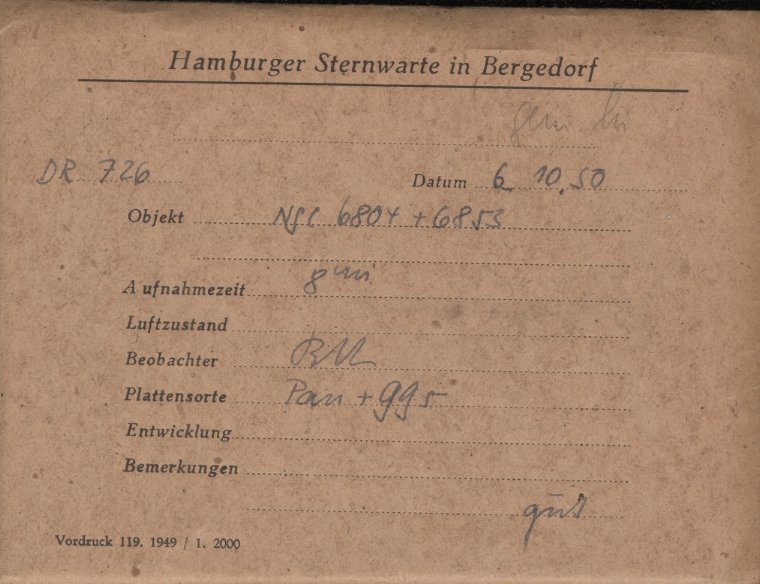 Hamburger Sternwarte in Bergedorf
DR 726
Datum 6 10.50
Objekt NGC 6804 + 6853
Aufnahmezeit 8 m
Luftzustand
Beobachter
Plattensorte Pan + 995
Entwicklung
Bemerkungen
gut
Vordruck 119. 1949 / 1. 2000